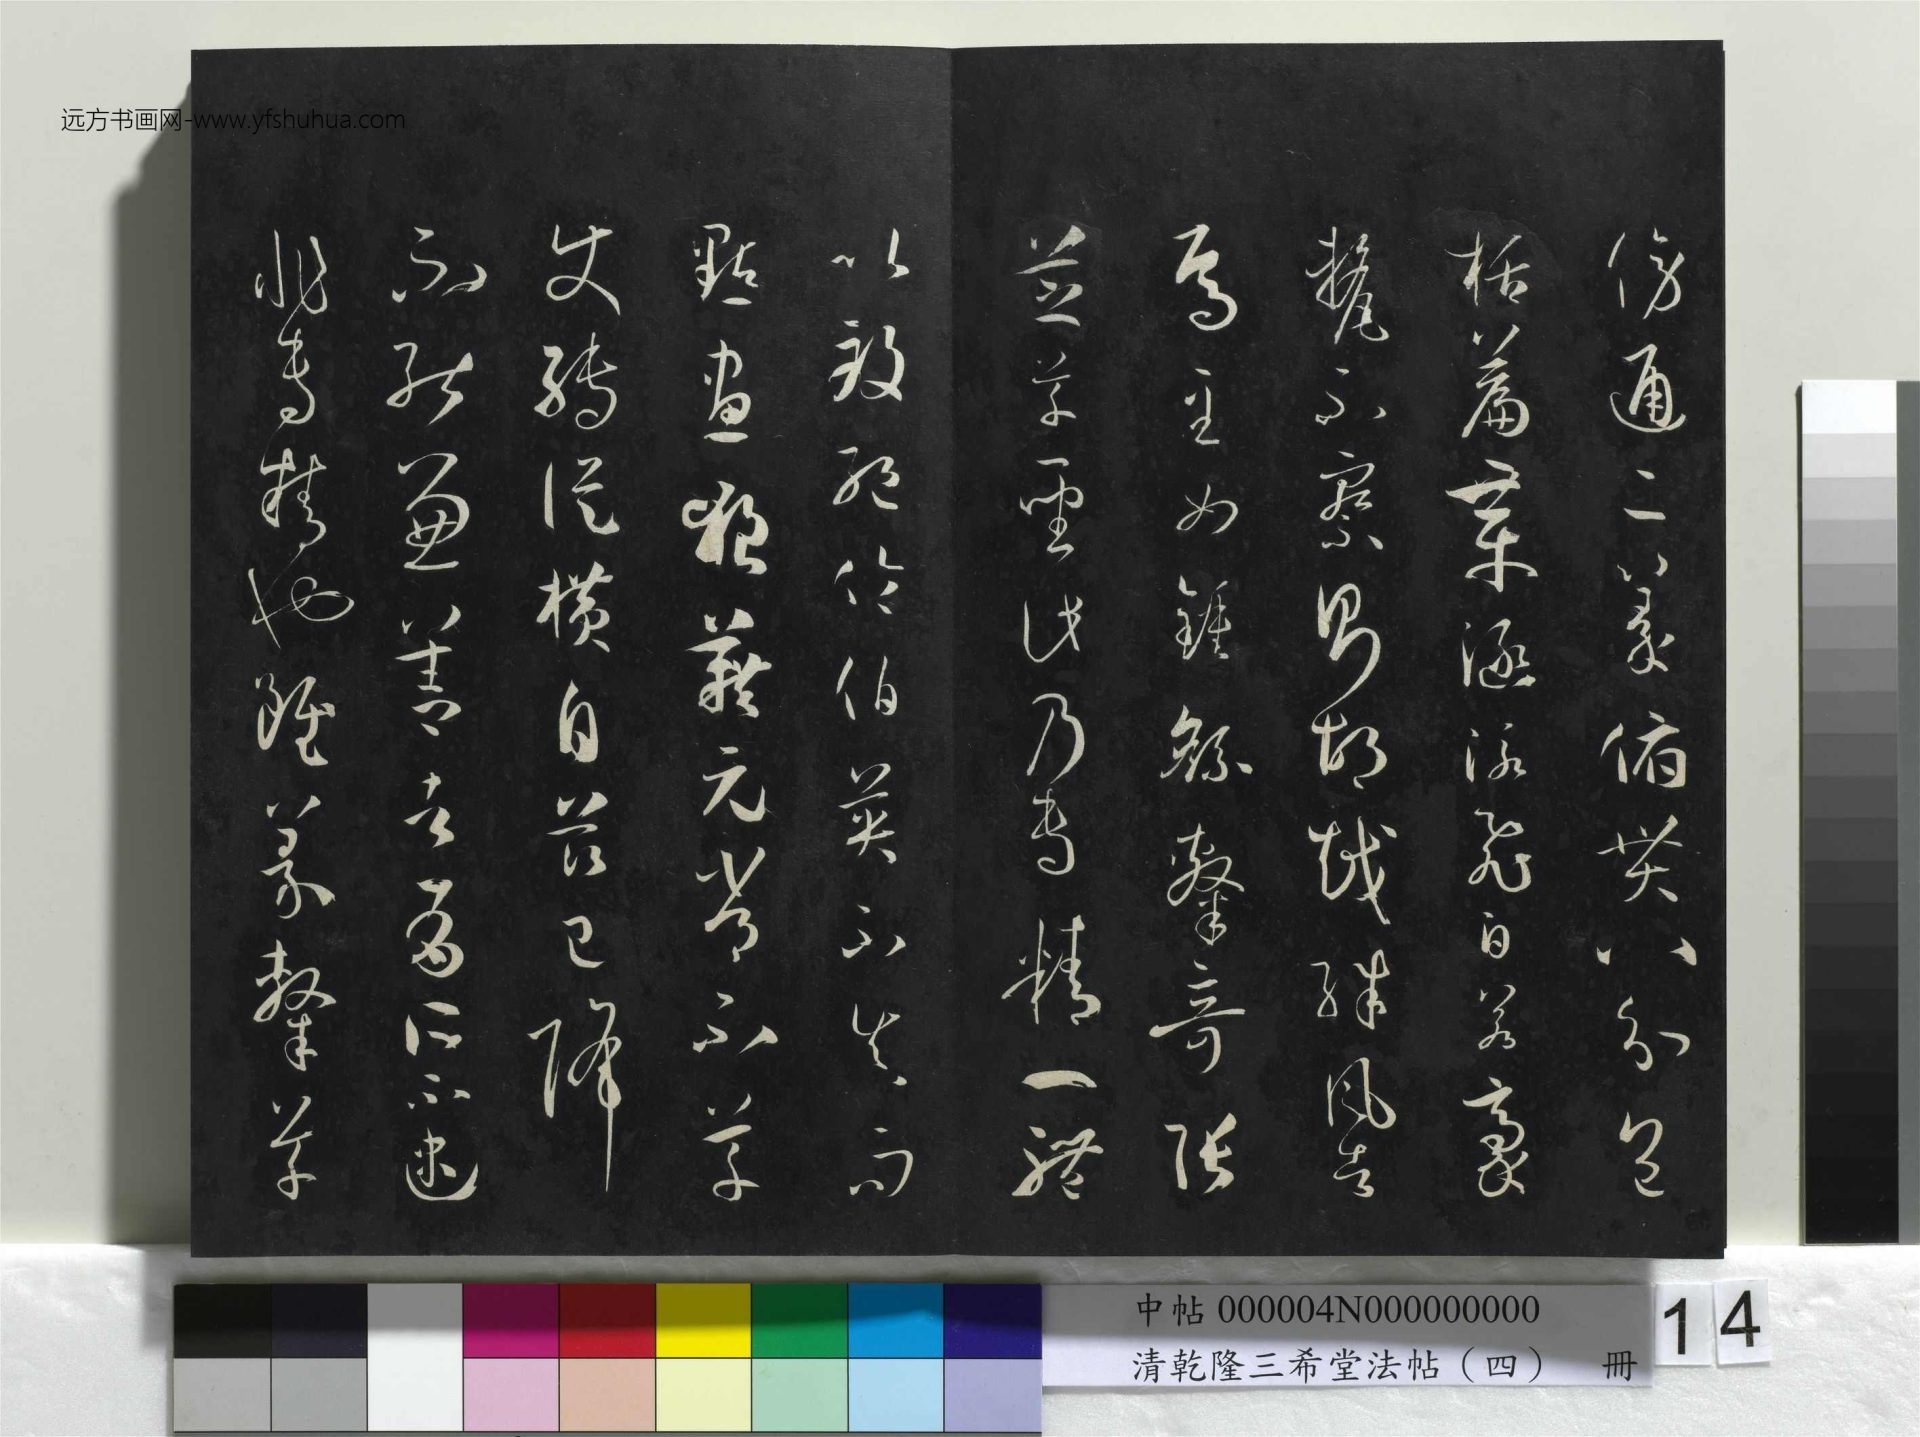 远方书画网-www.yfshuhua.com
傍通二篆俯貫八分包
括篇章涵泳飛白若豪
氂不察則胡越殊風者
焉至如鍾繇隸奇張
芝草聖此乃專精一體
以致絕倫伯英不真而
點畫狼藉元常不草
使轉從橫自茲已降
不能兼善者有所不逮
非專精也雖篆隸草
中帖 000004N000000000
清乾隆三希堂法帖（四） 冊
14